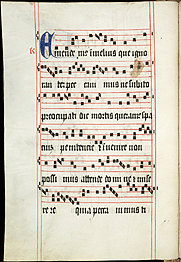 Emende mus in melius que igno
ran ter pec cavi mus ne subito
preocupati die mortis queramus spa
cium penitencie et invenire non
possi mus attende domine et mise
re re quia pecca vimus ti